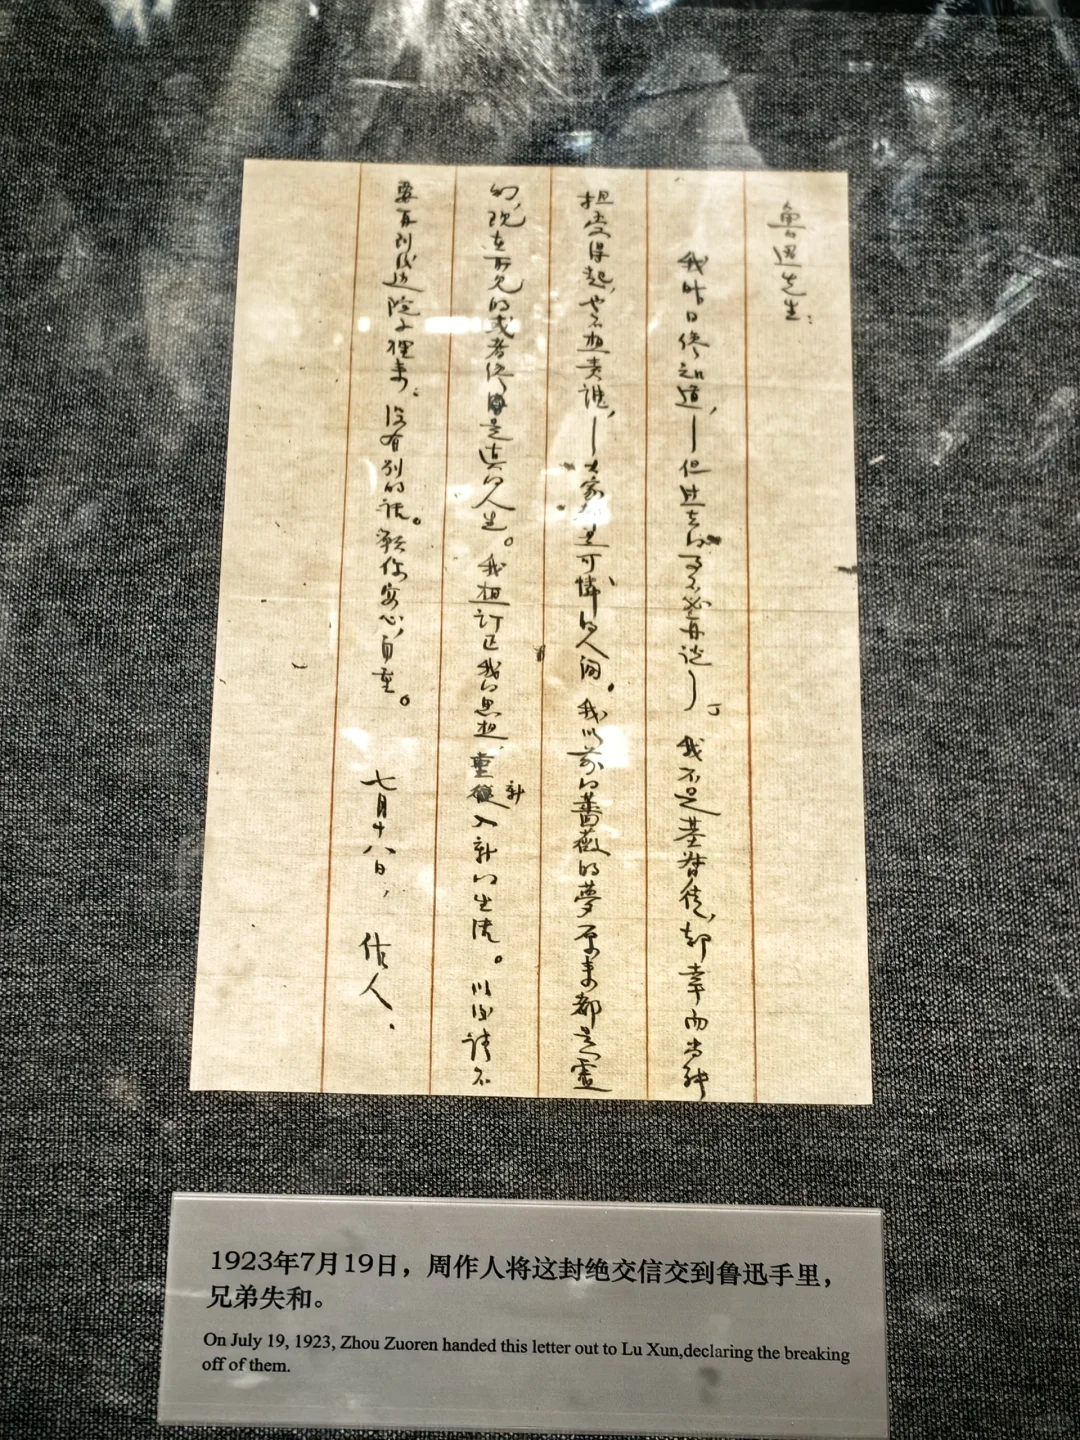 魯迅先生：
我昨日纔知道，—但過去的事不必再說」我不是基督徒，却幸而尚能
担受得起，也不想責誰，—大家都是可憐的人间。我以前的薔薇的夢原来都是虛
幻，现在所见的或者纔是真的人生。我想订正我的思想，重新入新的生活。以後請不
要再到後边院子裡来，没有别的话。願你安心，自重。
七月十八日，作人．
1923年7月19日，周作人将这封绝交信交到鲁迅手里，
兄弟失和。
On July 19, 1923, Zhou Zuoren handed this letter out to Lu Xun,declaring the breaking
off of them.